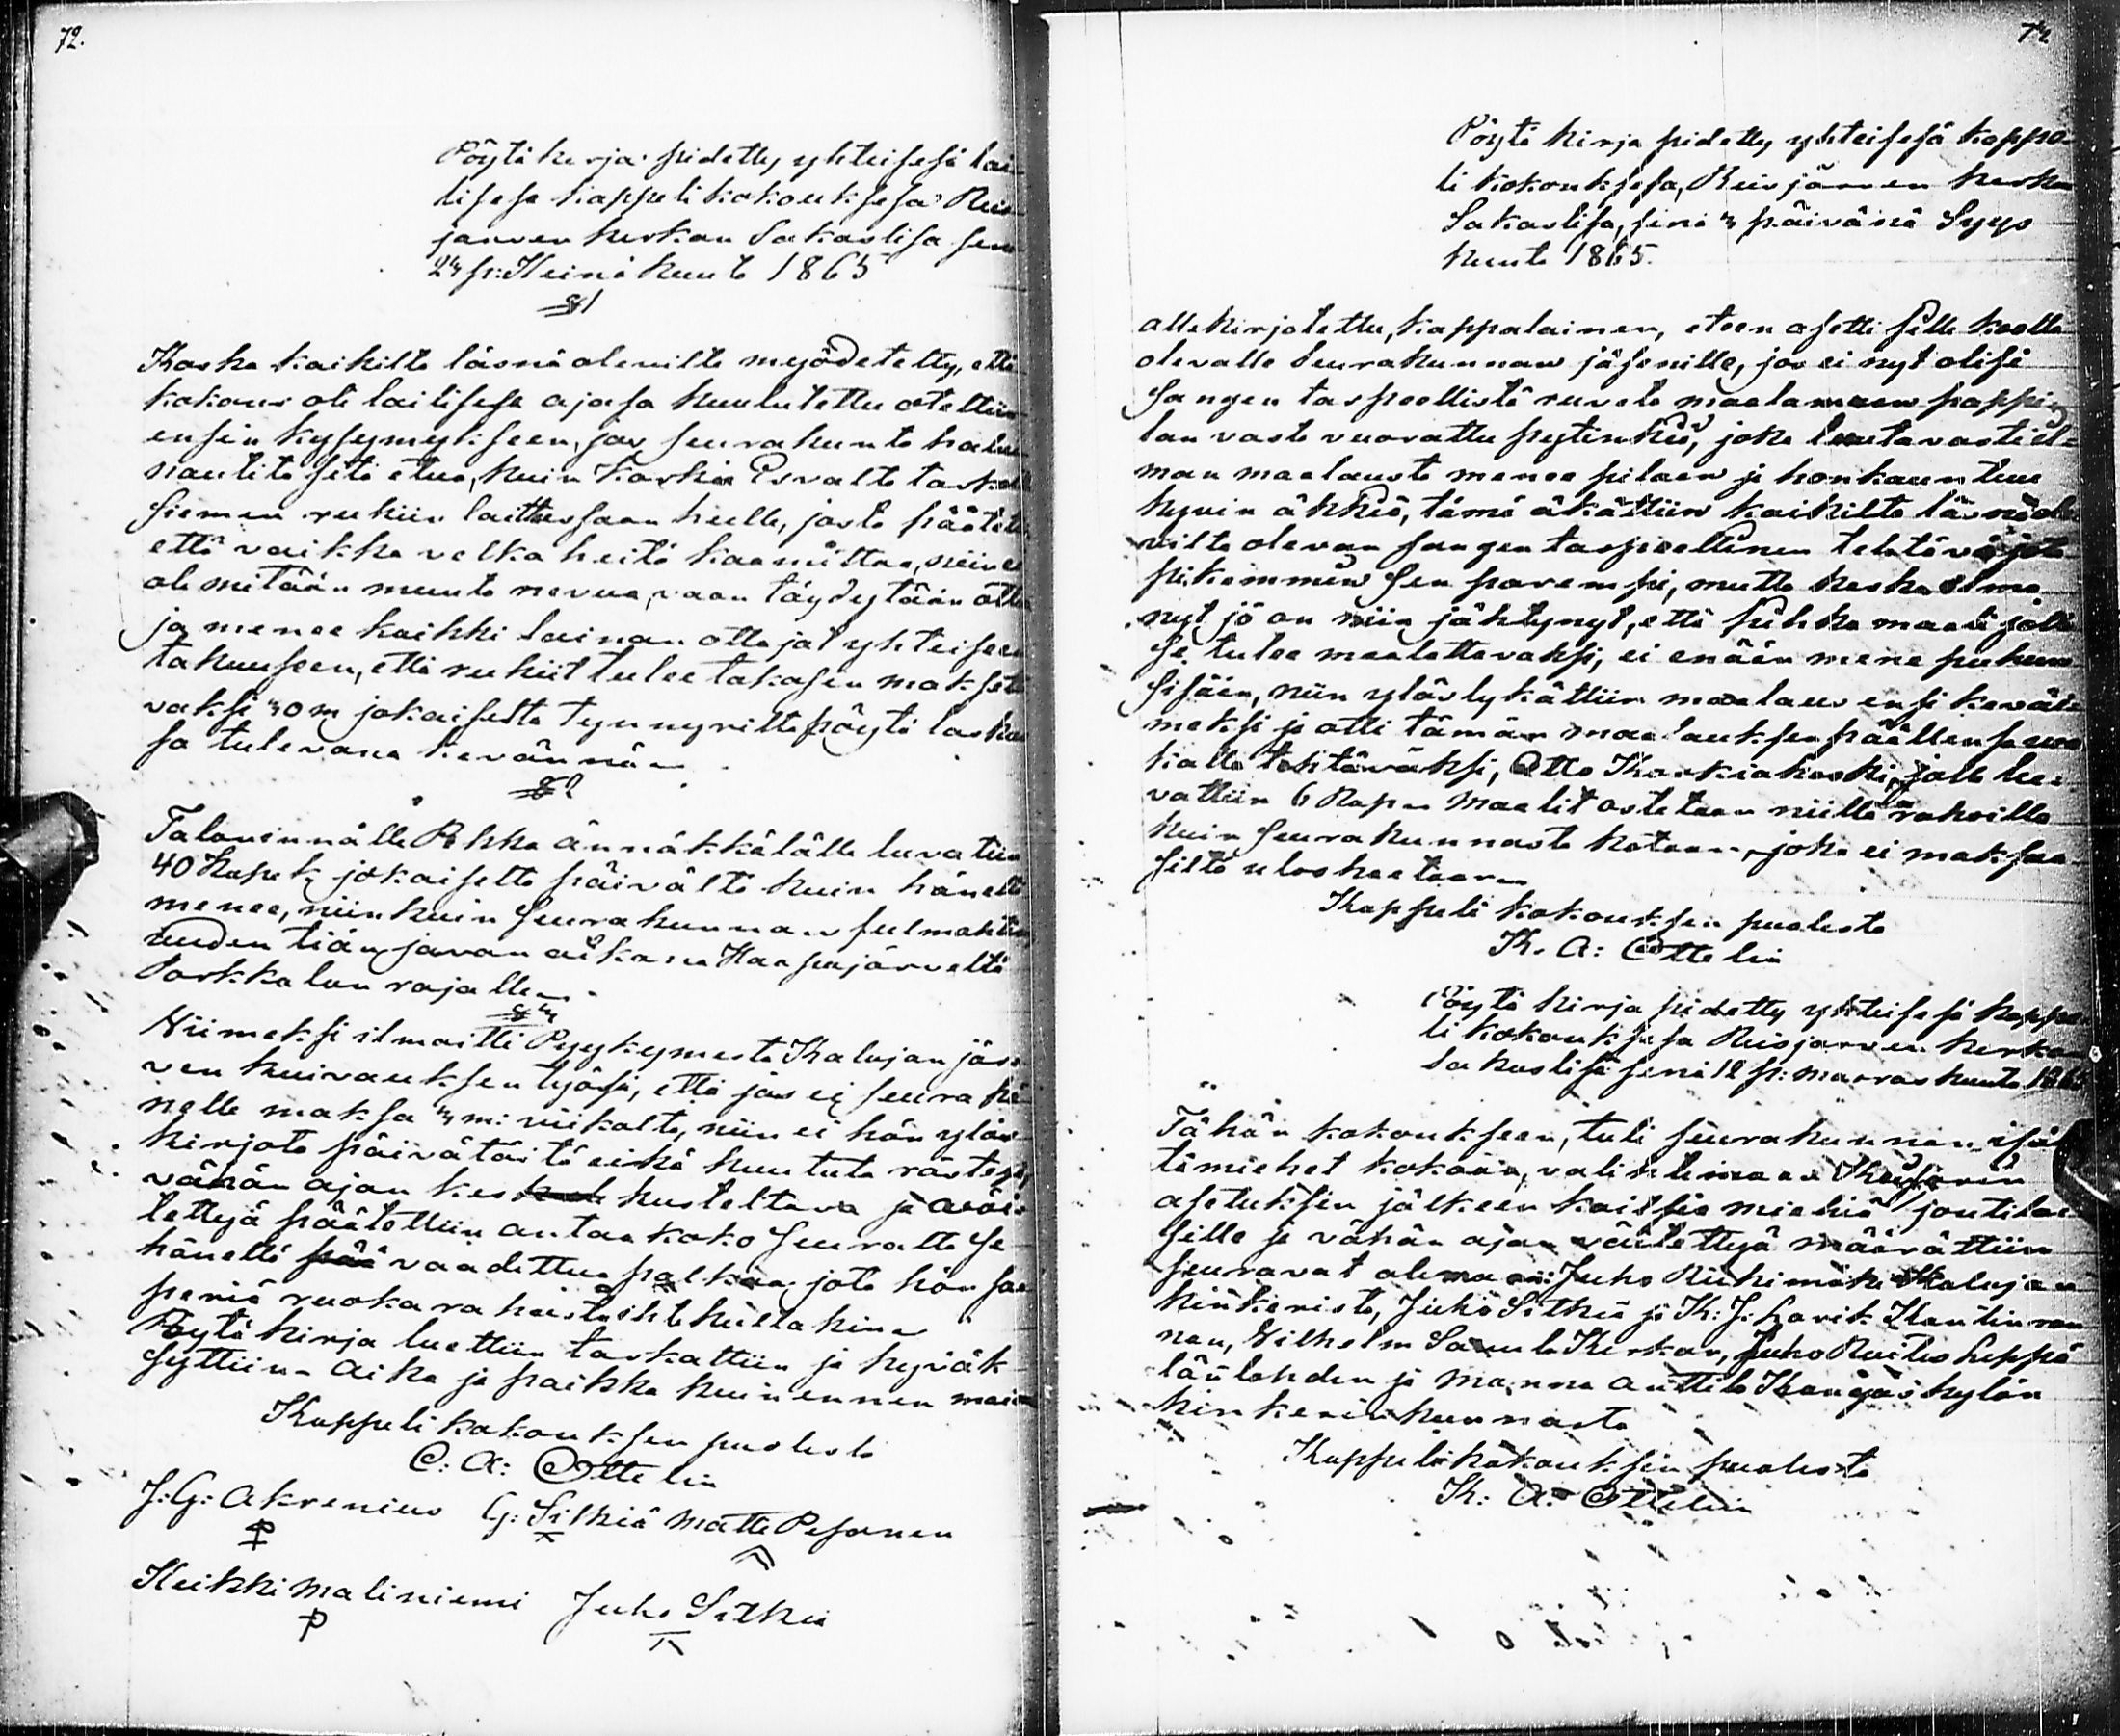 72.
Pöytäkirja pidetty yhteisesä lai
lisesa kappeli kokouksesa Reis
jarven kirkon Sakaslisa sinä
23 p: Heinäkuuta 1865
§1
Koska kaikilta läsnä olevilta myödetetty, että
kokous oli lailisesa ajasa kuulutettu otettiin
ensin kysymykseen, jos seurakunta halua
nautita sitä etua, kuin Karkia Esvalta
siemen rukiin laittessaan heille, josta päätettiin
että vaikka velka heitä kaamittaa, niin ei
ole mitään muuta nevua, vaan täydytään ottaa
ja menee kaikki lainan ottajat yhteiseen
takuuseen, että rukiit tulee takasin maksetta
vaksi 30 m jokaiselta tynnyriltä
sa tulevana kevännä
§2
Talonisännälle Pekka Ännäkkälälle luvatiin
40 kopek jokaiselta päivältä kuin häneltä
menee, niinkuin seurakunnan fulmahtin
uuden tiän javon aikana Haapajärveltä
Parkkalan rajalle
§3
Viimeksi ilmoitti Pyykymesta Kalajan jär
ven kuivauksen työsä, että jos ei seura hä
nelle maksa 3 m: viikolta, niin ei hän ylös
kirjota päivätöitä eikä muututa
vähän ajan kes kusteltava ja
tettyä päätettiin antaa koko seuralta se
häneltä vaadittua palkaa jota hän saa
periä ruoka rahoista
Pöytä kirja luettiin tarkattiin ja hyväk
syttiin. Aika ja paikka kuin ennen mai
Kappeli kokouksen puolesta
C: A: Ottelin
J: G: Akrenius G: Sithiä Matti Pesonen
Heikki Maliniemi Juho Sithiä
Pöytä kirja pidetty yhteisesä kappe
li kokouksesa, Reisjärven kirkon
Sakaslisa, sinä 3 päivänä Syys
kuuta 1865.
allekirjotettu, kappalainen, eteen asetti sille koolla
olevalle seurakunnan jäsenille, jos ei nyt olisi
sangen tarpeellistä ruveta maalamaan pappi
lan vasta vuorattu pytinkiä, joka luutavasti il-
man maalausta menee pilaan ja honkaantuu
hyvin äkkiä, tämä äkättiin kaikilta läsnäole
vilta olevan sangen tarpeellinen tehtävä jota
pikemmin sen parempi, mutta koska ilma
nyt jo on niin jähtynyt, että
se tulee maalattavaksi, ei enään mene puhun
sisään, niin ylöslykättiin maalaus ensi kevää
meksi ja otti tämän maalauksen päällensä
kalle tehtäväksi, Otto Karkiakoski, jolle lu-
vattiin 6 Rupl Maalit ostetaan niillä rahoilla
kuin seurakunnasta kotaan, joka ei maksaa
siltä uloshaetaan
Kappeli kokouksen puolesta
K. A: Ottelin
Pöytä kirja pidetty yhteisesä kappe
li kokouksesa Reisjarven kirko
Sakaslisa sinä 12 p: marraskuuta 1865
Tähän kokoukseen, tuli seurakunnan isän
tämiehet kokoon, valihtemaan Keisarin
asetuksen jälkeen miehiä joutilai
sille ja vähän ajan väitettyä määrättiin
seuravat olemaan: Juho Riihimäki Kalajan
kinkeristä, Juho Sithiä ja K: J: Kantinran
nan, Vilhelm Saxula Kirkon, Juho Leppä
länlahden ja Manna Anttila Kangaskylän
kinkerikunnasta
Kappelikokouksen puolesta
K: A: Ottelin